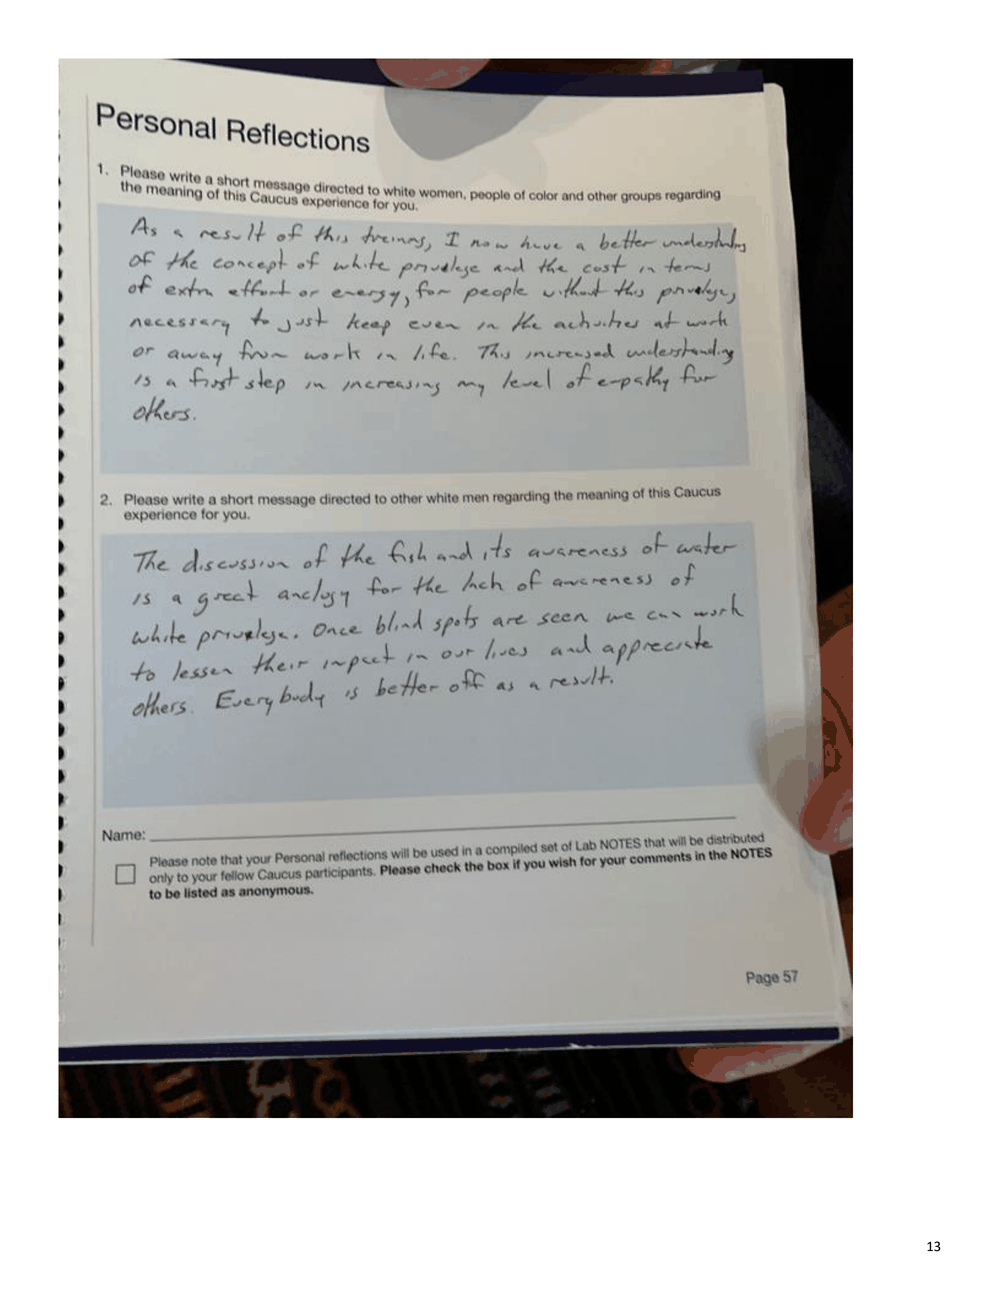 Personal Reflections
1. Please write a short message directed to white women, people of color and other groups regarding
the meaning of this Caucus experience for you.
As a result of this treinns, I now have a better understanding
of the concept of white privelege and the cost in terms
of extra effort or energy, for people without this privelege,
necessary to just keep even in the activities at work
or away from work in life. This increased understanding
is a first step in increasing my level of empathy for
others.
2. Please write a short message directed to other white men regarding the meaning of this Caucus
experience for you.
The discussion of the fish and its awareness of water
is a great anclogy for the lack of awareness of
white privelege. Once blind spots are seen we can work
to lessen their impact in our lives and appreciate
others. Everybody is better off as a result.
Name:
Please note that your Personal reflections will be used in a compiled set of Lab NOTES that will be distributed
only to your fellow Caucus participants. Please check the box if you wish for your comments in the NOTES
to be listed as anonymous.
Page 57
13